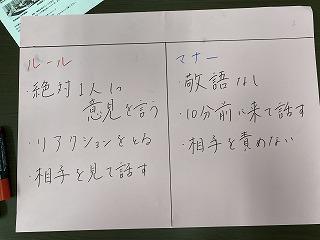 ルール
・絶対1人1つ
意見を言う
・リアクションをとる
・相手を見て話す
マナー
・敬語なし
・10分前に来て話す
・相手を責めない